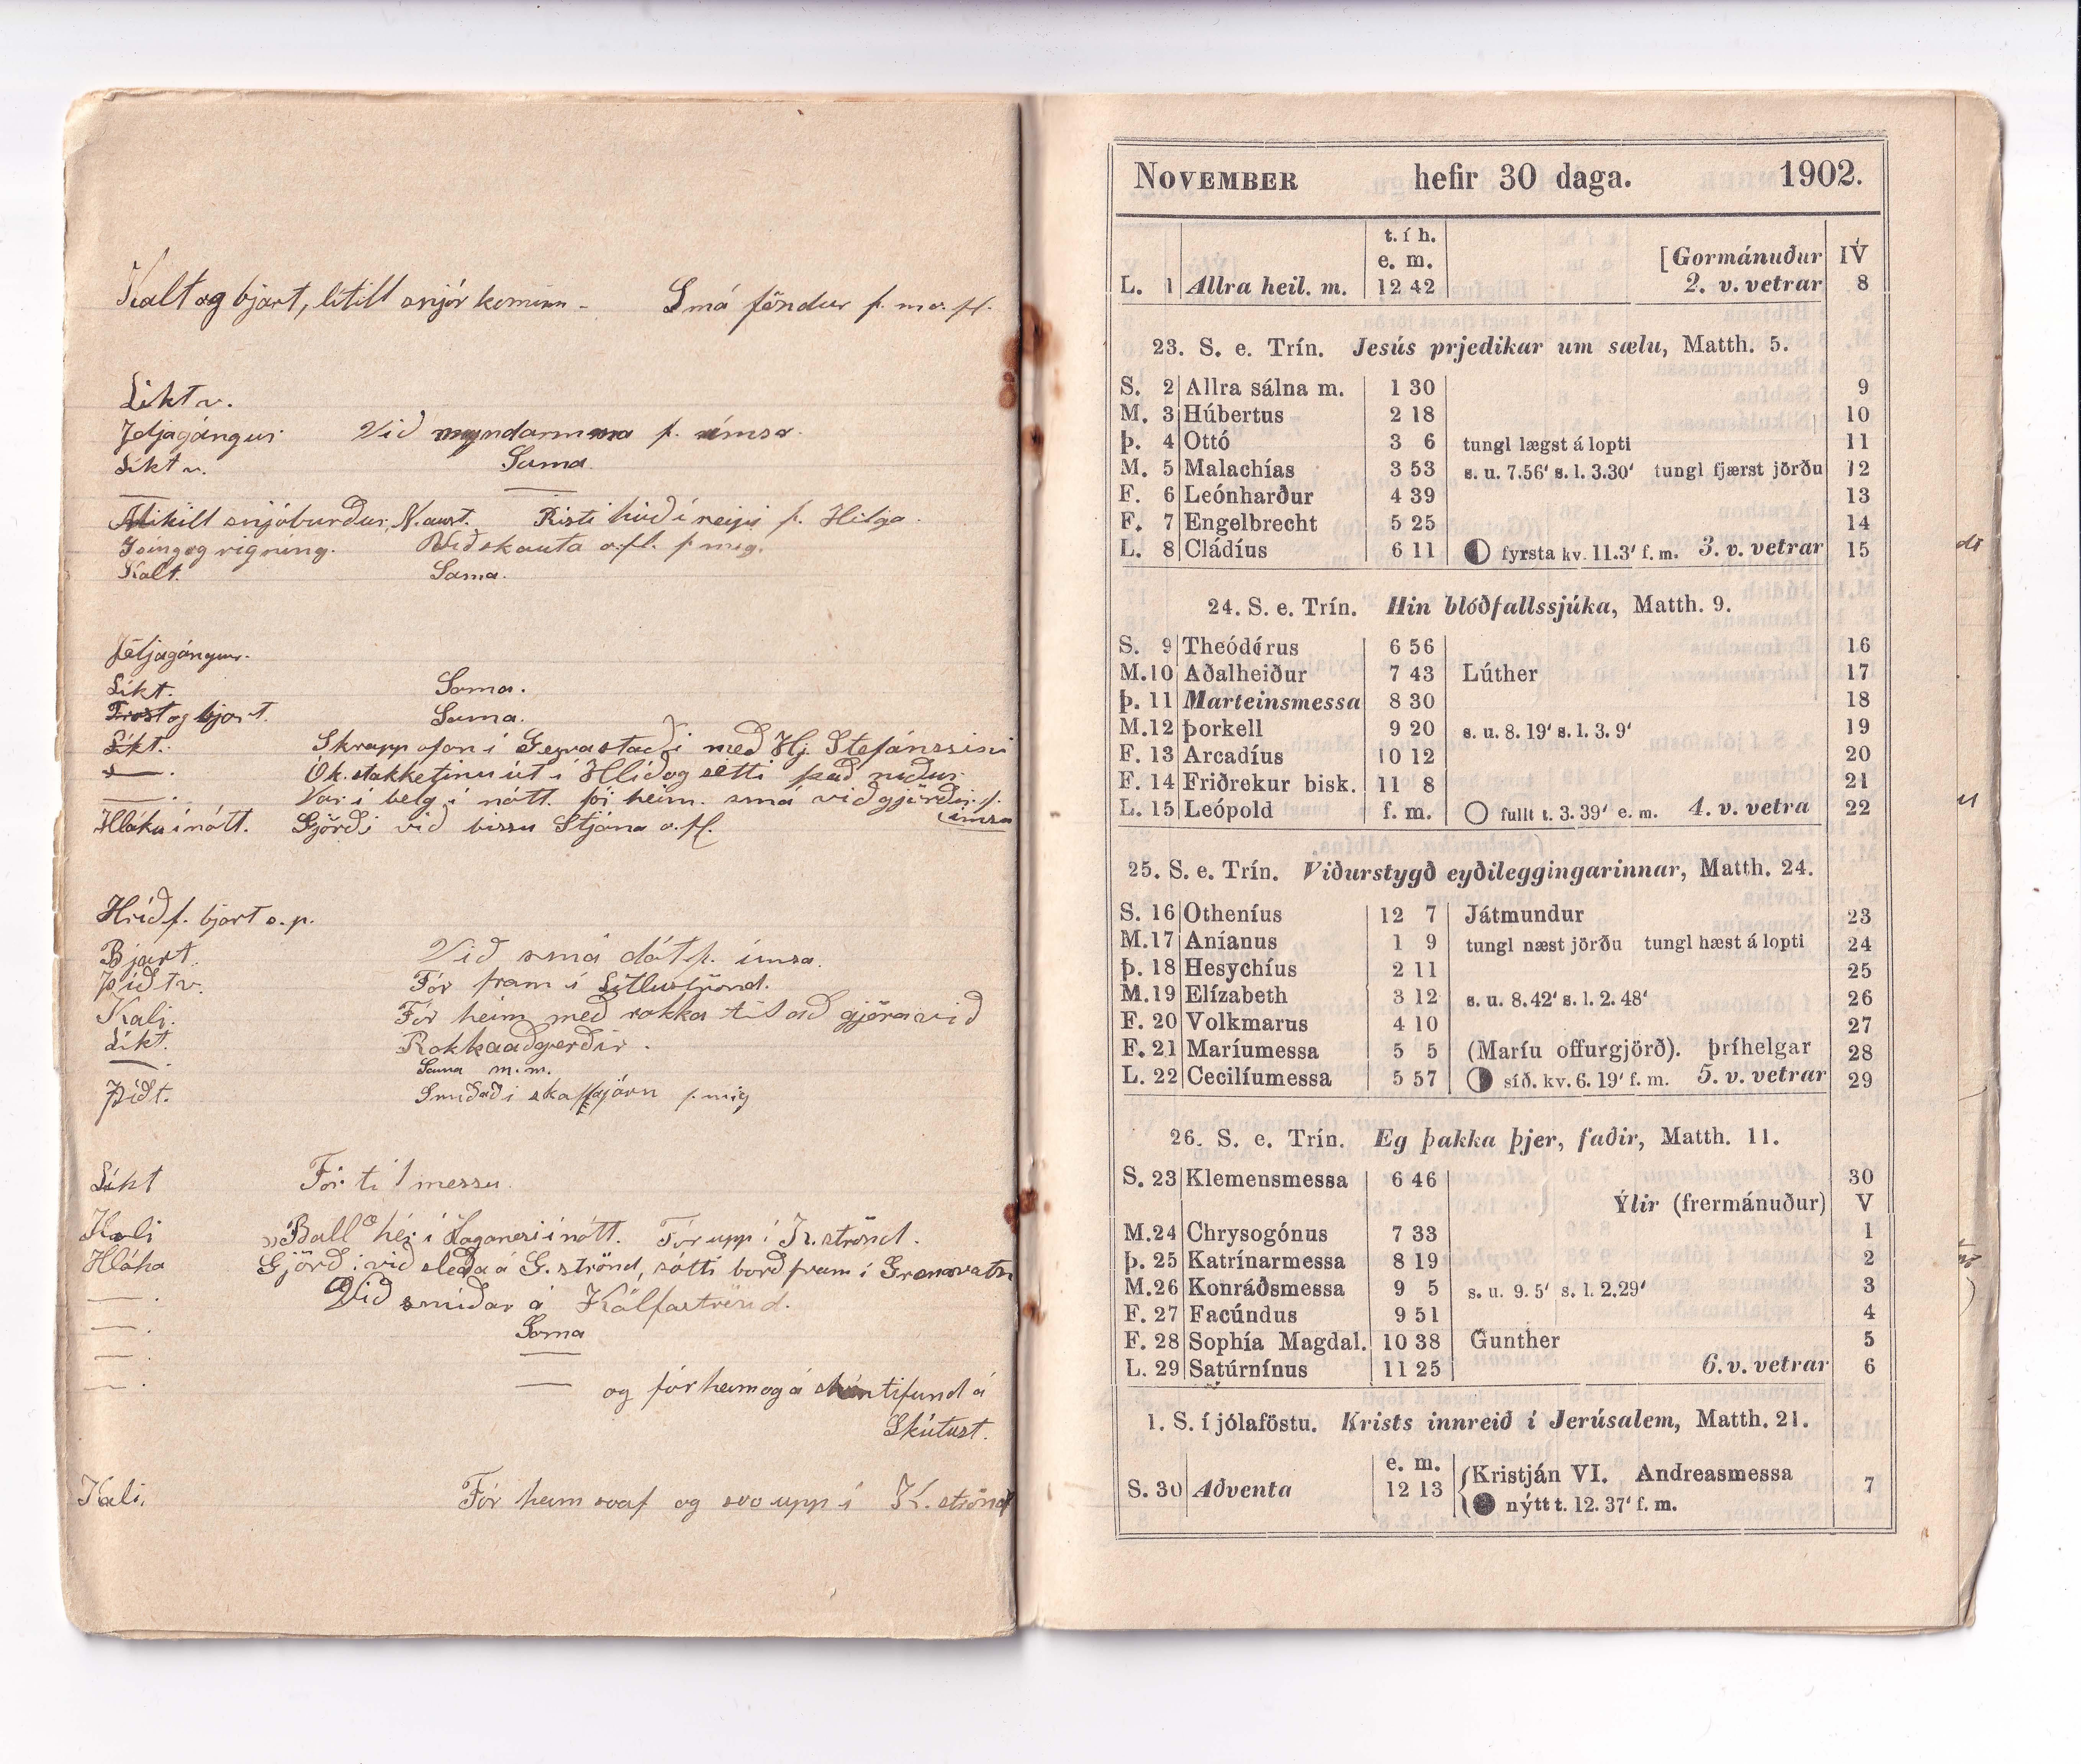 Kalt og bjart, lítill snjór kominn - Smá föndur f. mo. fl.
Líkt v.
Jeljagángur Við myndarmma f. ímsa.
Líkt v. Sama
Mikill snjóburður, N. aust. Risti húð í reipi f. Helga.
og rigning. Við skauta o.fl. f. mig.
Kalt. Sama.
Jeljagángur.
Líkt. Sama.
Frost og bjart. Sama.
Líkt. Skrapp ofan í Geirastaði með Hj. Stefánssini
— . Ók stakketinu út í Hlíð og setti það niður.
— . Var í belg í nótt. fór heim. smá viðgjörðir f. ímsa
Hláka í nótt. Gjörði við bissu Stjána o.fl.
Hríð f. bjart s. p.
Bjart. Við smá dót f. ímsa.
Þíðt v. Fór fram í Litluströnd.
Kali. Fór heim með rokka til að gjöra við
Líkt. Rokkaaðgerðir.
— . Sama m. m.
Þíðt. Smíðaði skaflajárn f. mig
Líkt Fór til messu.
Kali „Ball" hér í Haganesi í nótt. Fór upp í K. strönd.
Hláka Gjörði við sleða á G. strönd, sótti borð fram í Grænavatn
— . Við smíðar á Kálfaströnd.
— . Sama
— . —
— . — og fór heim og á skúntifund á
Skútust.
Kali. Fór heim svaf og svo upp í K. strönd
NOVEMBER hefir 30 daga. 1902.
t. í h.
e. m. [Gormánuður IV
L. 1 Allra heil. m. 12 42 2. v. vetrar 8
23. S. e. Trín. Jesús prjedikar um sælu, Matth. 5.
S. 2 Allra sálna m. 1 30 9
M. 3 Húbertus 2 18 10
Þ. 4 Ottó 3 6 tungl lægst á lopti 11
M. 5 Malachías 3 53 s. u. 7.56' s. l. 3.30' tungl fjærst jörðu 12
F. 6 Leónharður 4 39 13
F. 7 Engelbrecht 5 25 14
L. 8 Cládíus 6 11 fyrsta kv. 11.3' f. m. 3. v. vetrar 15
24. S. e. Trín. Hin blóðfallssjúka, Matth. 9.
S. 9 Theódórus 6 56 16
M. 10 Aðalheiður 7 43 Lúther 17
Þ. 11 Marteinsmessa 8 30 18
M. 12 Þorkell 9 20 s. u. 8. 19' s. l. 3. 9' 19
F. 13 Arcadíus 10 12 20
F. 14 Friðrekur bisk. 11 8 21
L. 15 Leópold f. m. fullt t. 3. 39' e. m. 4. v. vetra 22
25. S. e. Trín. Viðurstygð eyðileggingarinnar, Matth. 24.
S. 16 Otheníus 12 7 Játmundur 23
M. 17 Aníanus 1 9 tungl næst jörðu tungl hæst á lopti 24
Þ. 18 Hesychíus 2 11 25
M. 19 Elízabeth 3 12 s. u. 8. 42' s. l. 2. 48' 26
F. 20 Volkmarus 4 10 27
F. 21 Maríumessa 5 5 (Maríu offurgjörð). Þríhelgar 28
L. 22 Cecilíumessa 5 57 síð. kv. 6. 19' f. m. 5. v. vetrar 29
26. S. e. Trín. Eg þakka þjer, faðir, Matth. 11.
S. 23 Klemensmessa 6 46 30
Ýlir (frermánuður) V
M. 24 Chrysogónus 7 33 1
Þ. 25 Katrínarmessa 8 19 2
M. 26 Konráðsmessa 9 5 s. u. 9. 5' s. l. 2.29' 3
F. 27 Facúndus 9 51 4
F. 28 Sophía Magdal. 10 38 Gunther 5
L. 29 Satúrnínus 11 25 6. v. vetrar 6
1. S. í jólaföstu. Krists innreið í Jerúsalem, Matth. 21.
e. m. Kristján VI. Andreasmessa
S. 30 Aðventa 12 13 nýtt t. 12. 37' f. m. 7